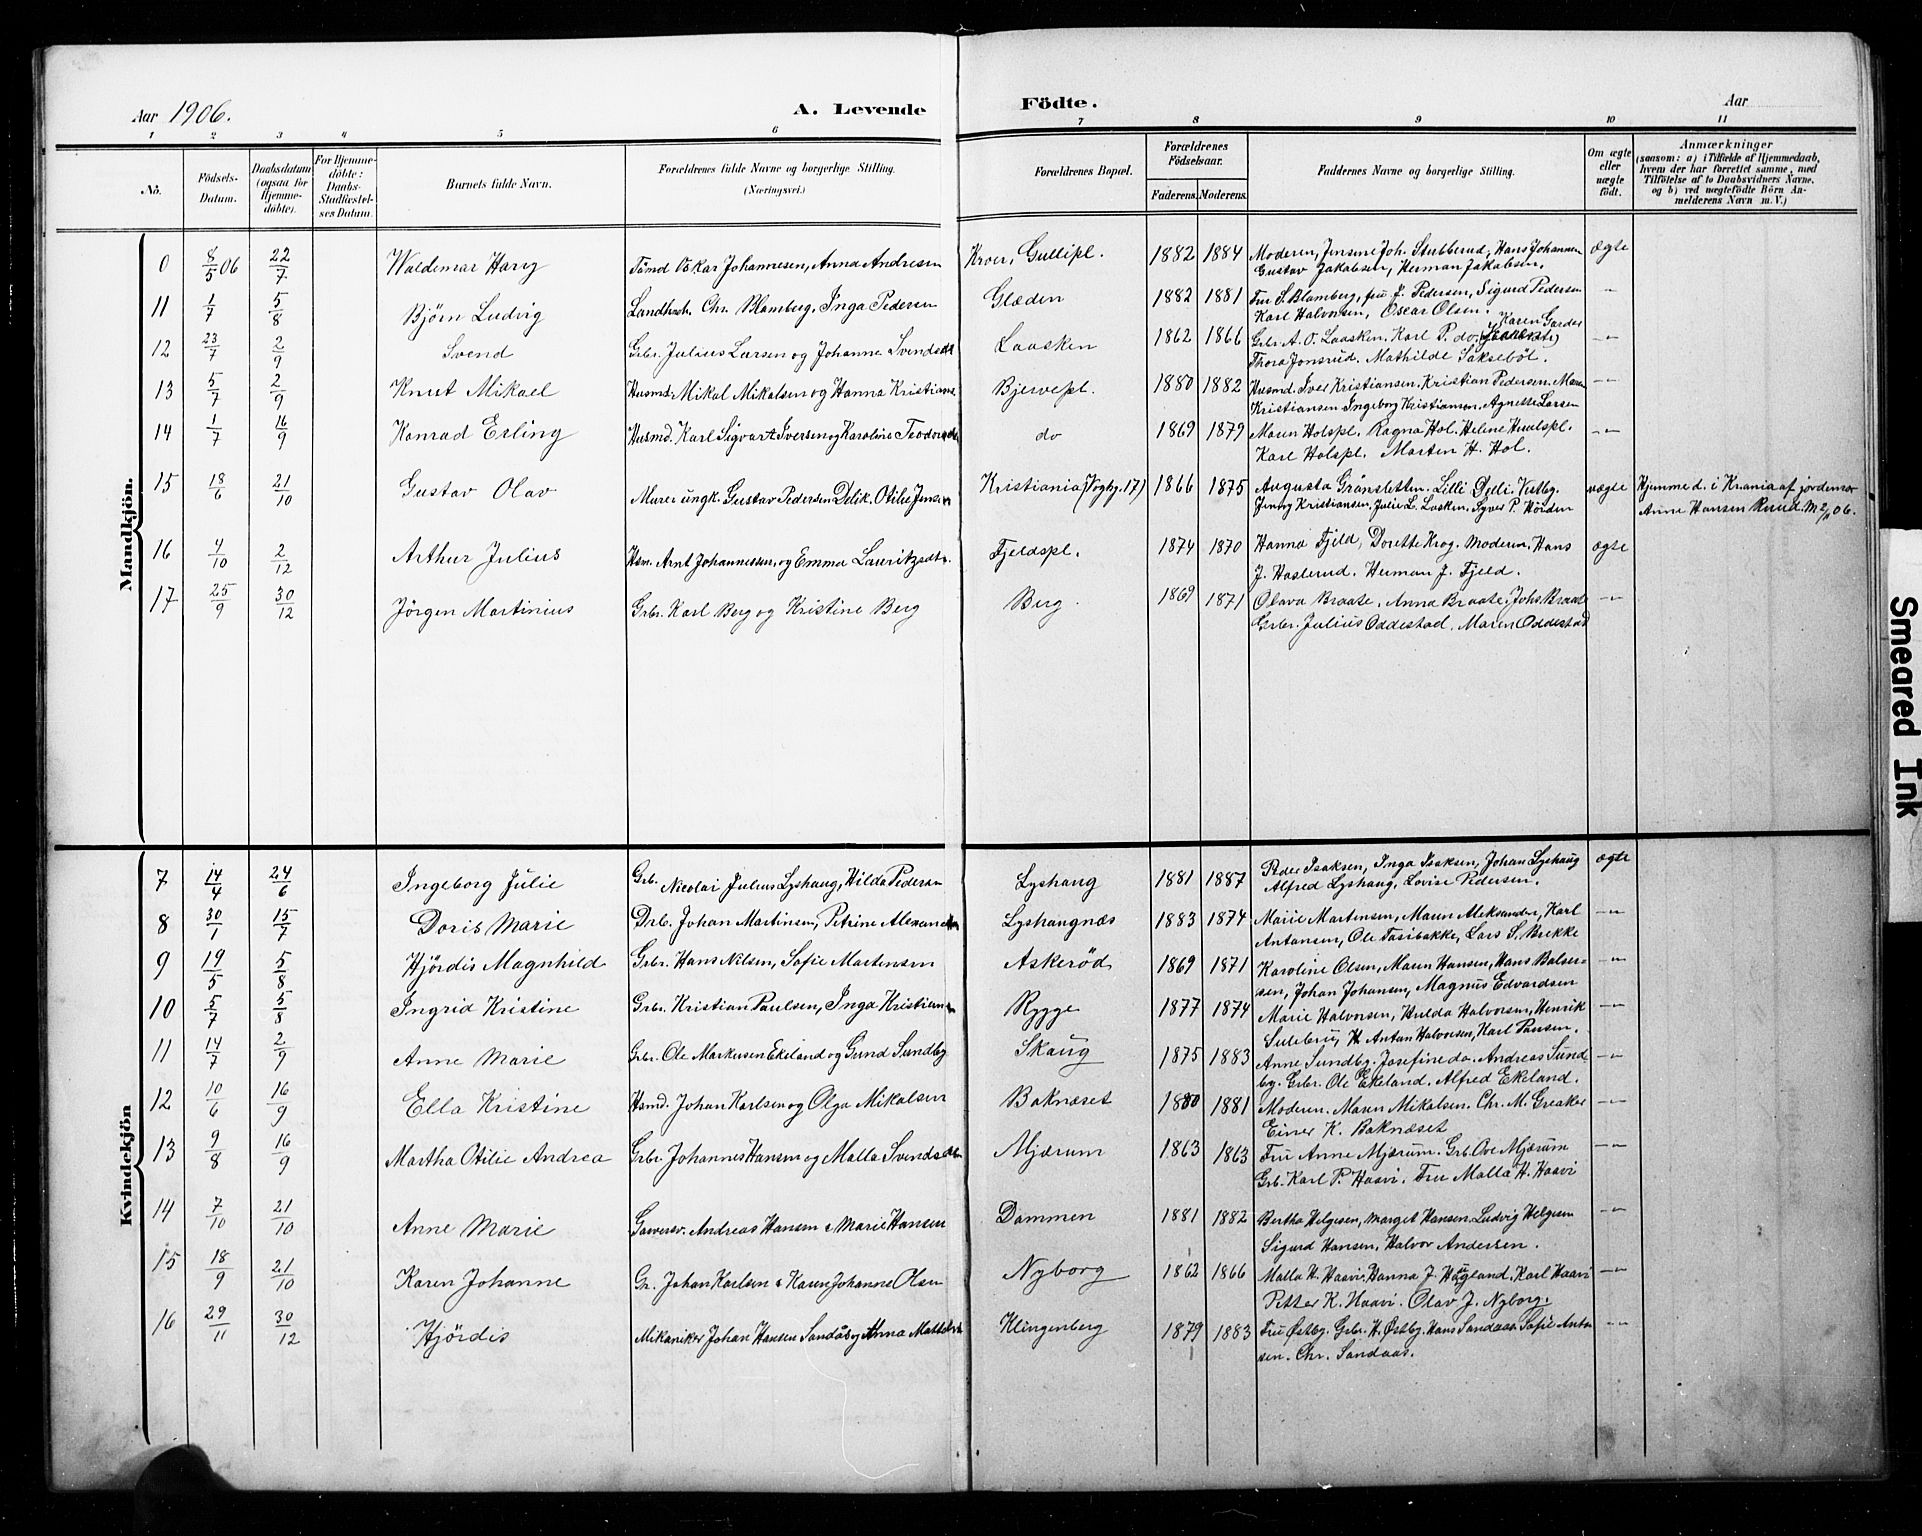 Aar 1906.
A. Levende Födte.
Aar
1 2 3 4 5 6 7 8 9 10 11
No.
Födsels-Datum.
Daabsdatum (ogsaa for Hjemmedöbte).
For Hjemmedöbte: Daabs-Stadfæstelses Datum.
Barnets fulde Navn.
Forældrenes fulde Navne og borgerlige Stilling. (Næringsvei.)
Forældrenes Bopæl.
Forældrenes Födselsaar.
Faderens. Moderens.
Faddernes Navne og borgerlige Stilling.
Om ægte eller uægte født.
Anmærkninger (saasom: a) i Tilfælde af Hjemmedaab, hvem der har forrettet samme, med Tilföielse af to Daabsvidners Navne, og b) ved uægtefödte Börn Anmelderens Navn m. V.)
Mandkjön.
0 8/5 06 22/7 Waldemar Harry Tömd Oskar Johannesen, Anna Andresen Kroer, Gullipl. 1882 1884 Moderen, Jensine Joh. Stubberud, Hans Johannen ægte
Gustav Jakobsen, Herman Jakobsen.
11 1/7 5/8 Björn Ludvig Landh. Chr. Blomberg, Inga Pedersen Glæden 1882 1881 Fru S. Blomberg, fru J. Pedersen, Sigurd Pedersen -"-
Karl Halvorsen, Oscar Olsen.
12 23/7 2/9 Svend Grbr. Julius Larsen og Johanne Svendsdt Laasken 1862 1866 Grbr. A. O. Laasken. Karl P. do. Karen Garder -"-
Thora Jonsrud. Mathilde Sakseböl.
13 5/7 2/9 Knut Mikael Husmd. Mikal Mikalsen og Hanna Kristians Bjervepl. 1880 1882 Husmd. Iver Kristiansen. Kristian Pedersen. Maren -"-
Kristiansen Ingeborg Kristiansen. Agnette Larsen
14 1/7 16/9 Konrad Erling Husmd. Karl Sigvart Iversen og Karoline Teodorsdt do 1869 1879 Maren Holspl. Ragna Hol. Helene Huslspl. -"-
Karl Holspl. Marten H. Hol.
15 18/6 21/10 Gustav Olav Murer ungk. Gustav Pedersen Delik. Otilie Jensen Kristiania (Vogtg. 17) 1866 1875 Augusta Grönsletten. Lilli Deli. Vestby. uægte Hjemmed. i Krania af jordemor
Jenny Kristiansen. Julie L. Lasken. Syver P. Hörden Anne Hansen Ruud.
16 4/10 2/12 Arthur Julius Hsm. Arnt Johannessen, og Emma Lauritzsdtr. Fjeldspl. 1874 1870 Hanna Fjeld, Dorette Krog. Moderen, Hans ægte
J. Hasterud. Herman J. Fjeld.
17 25/9 30/12 Jörgen Martinius Grbr. Karl Berg og Kristine Berg Berg. 1869 1871 Olava Braate. Anna Braate. Johs Braate -"-
Grbr. Julius Oddestad. Maren Oddestad
Kvindekjön
7 14/4 24/6 Ingeborg Julie Grb. Nicolai Julius Lyshaug, Hilda Pedersen Lyshaug 1881 1887 Peder Isaksen, Inga Isaksen, Johan Lyshaug ægte
Alfred Lyshaug, Lovise Pedersen.
8 30/1 15/7 Doris Marie Drb. Johan Martinsen, Petrine Alexandersen Lyshaugnæs 1883 1874 Marie Martensen, Maren Aleksander, Karl -"-
Antonsen, Ole Tasibakke, Lars S. Brekke
9 19/5 5/8 Hjördis Magnhild Grbr. Hans Nilsen, Sofie Martensen Askeröd 1869 1871 Karoline Olsen, Maren Hansen, Hans Balser- -"-
sen, Johan Johansen, Magnus Edvardsen
10 5/7 5/8 Ingrid Kristine Grbr. Kristian Paulsen, Inga Kristiansen Rygge 1877 1874 Marie Halvorsen, Hulda Halvorsen, Henrik -"-
Sulebru, H. Anton Halvorsen, Karl Pausen.
11 14/7 2/9 Anne Marie Grbr. Ole Markusen Ekeland og Gund Sundby Skaug 1875 1883 Anne Sundby. Josefine do. Andreas Sund- -"-
by. Grbr. Ole Ekeland. Alfred Ekeland.
12 10/6 16/9 Ella Kristine Hsmd. Johan Karlsen og Olga Mikalsen Baknæset 1880 1881 Moderen. Maren Mikalsen. Chr. M. Greaker -"-
Einer K. Baknæset
13 9/8 16/9 Martha Otilie Andrea Grbr. Johannes Hansen og Malla Svendsdtr Mjærum 1863 1863 Fru Anne Mjærum. Grb. Ove Mjærum -"-
Grb. Karl P. Haavi. Fru Malla H. Haavi
14 7/10 21/10 Anne Marie Garversv. Andreas Hansen & Marie Hansen Dammen 1881 1882 Bertha Helgesen, Marget Hansen. Ludvig Helgesen -"-
Sigurd Hansen, Halvor Andersen.
15 18/9 21/10 Karen Johanne Gr. Johan Karlsen & Karen Johanne Olsen Nyborg 1862 1866 Malla H. Haavi, Hanna J. Haugland. Karl Haavi -"-
Petter K. Haavi. Olav J. Nyborg.
16 29/11 30/12 Hjördis Mikaniker Johan Hansen Sandås og Anna Klingenberg 1879 1883 Fru Østby. Grbr. H. Østby. Hans Sandaas. Sofie Anton -"-
sen. Chr. Sandaas.
Smeared Ink